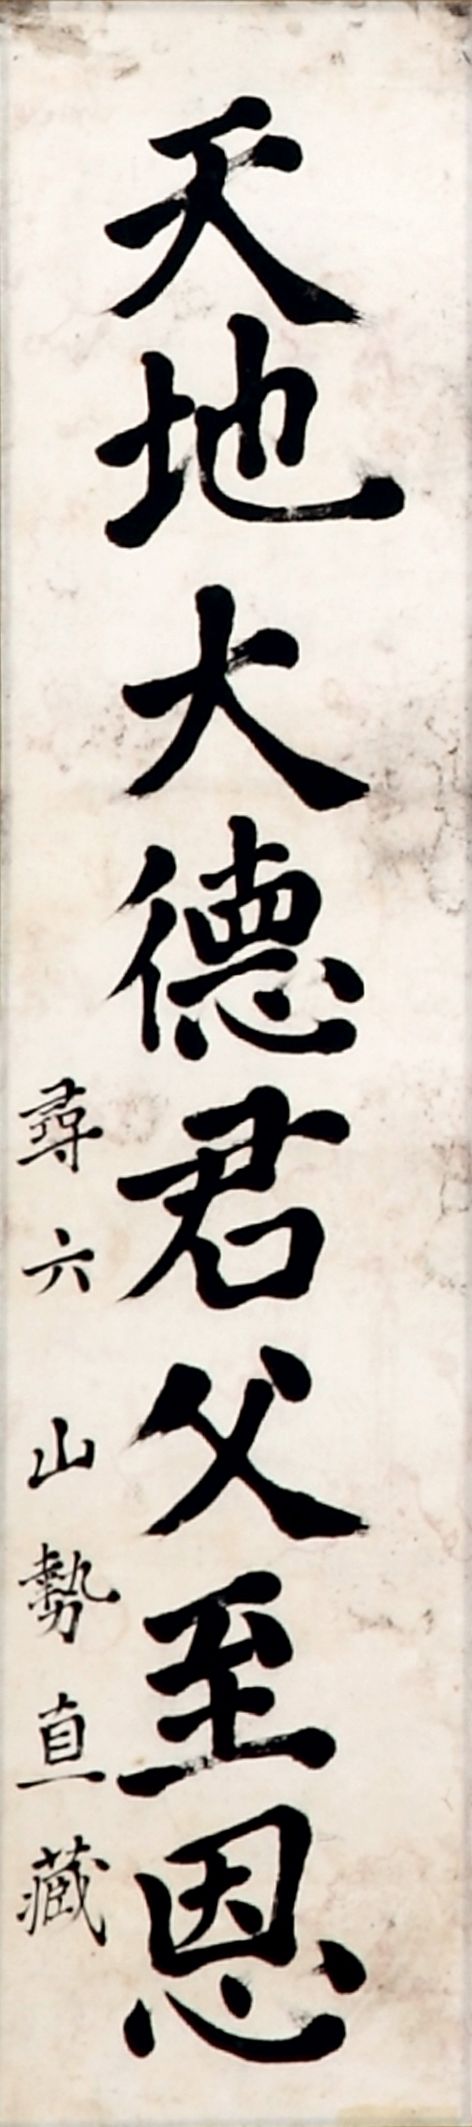 天地大德君父至恩
尋六 山勢直藏